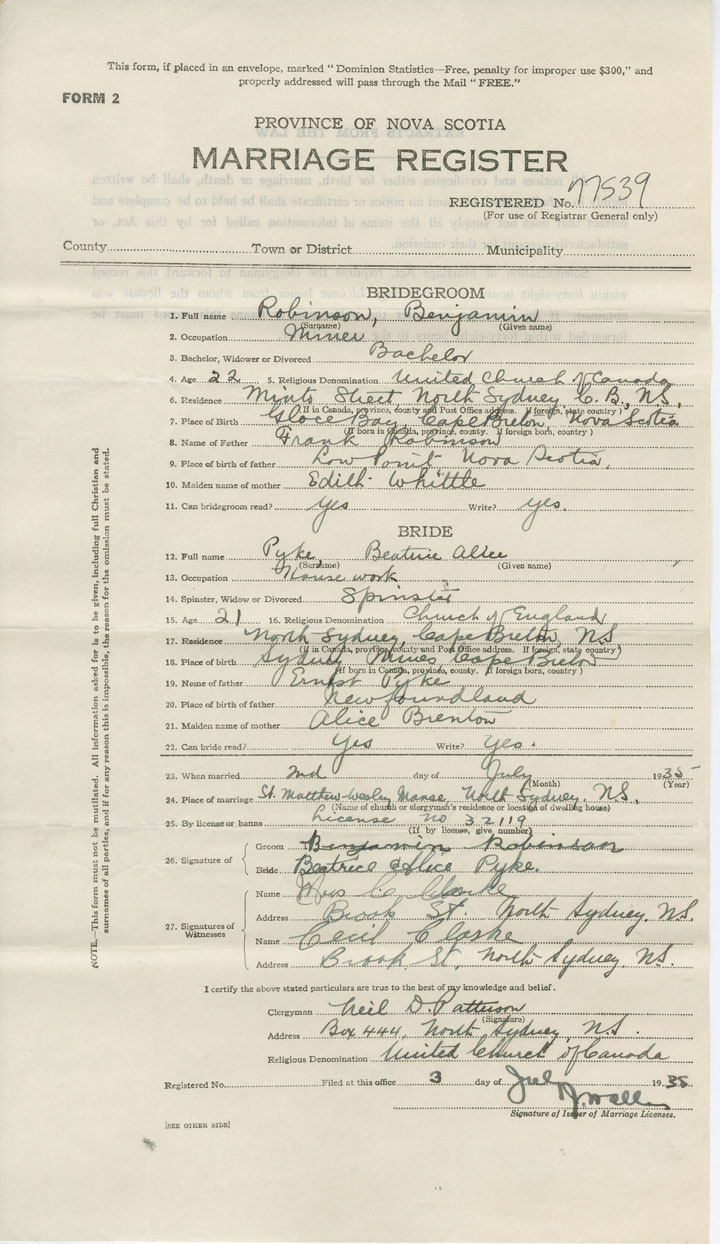 This form, if placed in an envelope, marked "Dominion Statistics—Free, penalty for improper use $300," and
properly addressed will pass through the Mail "FREE."
FORM 2
PROVINCE OF NOVA SCOTIA
MARRIAGE REGISTER
REGISTERED No. 77539
(For use of Registrar General only)
County Town or District Municipality
BRIDEGROOM
1. Full name Robinson, Benjamin
(Surname) (Given name)
2. Occupation Miner
3. Bachelor, Widower or Divorced Bachelor
4. Age 22 5. Religious Denomination United Church of Canada
6. Residence Minto Street North Sydney C. B., N.S.,
(If in Canada, province, county and Post Office address. If foreign, state country)
7. Place of Birth Glace Bay, Cape Breton, Nova Scotia
(If born in Canada, province, county. If foreign born, country)
8. Name of Father Frank Robinson
9. Place of birth of father Low Point Nova Scotia,
10. Maiden name of mother Edith Whittle
11. Can bridegroom read? yes Write? yes.
BRIDE
12. Full name Pyke, Beatrice Alice
(Surname) (Given name)
13. Occupation House work
14. Spinster, Widow or Divorced Spinster
15. Age 21 16. Religious Denomination Church of England
17. Residence North Sydney, Cape Breton, N.S
(If in Canada, province, county and Post Office address. If foreign, state country)
18. Place of birth Sydney Mines, Cape Breton
(If born in Canada, province, county. If foreign born, country)
19. Name of father Ernst Pyke
20. Place of birth of father Newfoundland
21. Maiden name of mother Alice Brenton
22. Can bride read? Yes Write? Yes.
23. When married 2nd day of July 1935
(Month) (Year)
24. Place of marriage St. Matthew-Wesley Manse, North Sydney, N.S.,
(Name of church or clergyman's residence or location of dwelling house)
25. By license or banns License no 32119
(If by license, give number)
26. Signature of
Groom Benjamin Robinson
Bride Beatrice Alice Pyke.
27. Signatures of Witnesses
Name Mrs C. Clarke
Address Brook St. North Sydney, N.S.
Name Cecil Clarke
Address Brook St, North Sydney, N.S.
I certify the above stated particulars are true to the best of my knowledge and belief.
Clergyman Neil D. Patterson
(Signature)
Address Box 444, North Sydney, N.S.
Religious Denomination United Church of Canada
Registered No. Filed at this office 3 day of July 1935
Signature of Issuer of Marriage Licenses.
[SEE OTHER SIDE]
NOTE.—This form must not be mutilated. All information asked for is to be given, including full Christian and
surnames of all parties, and if for any reason this is impossible, the reason for the omission must be stated.